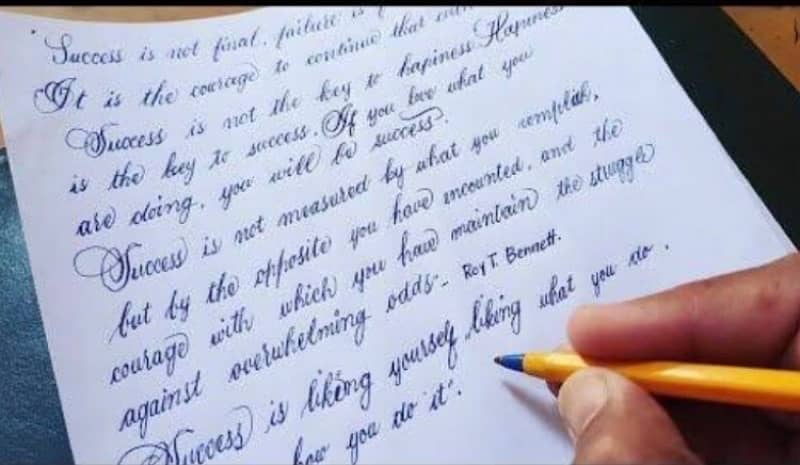 "Success is not final, failure is
It is the courage to continue that
Success is not the key to hapiness Hapiness
is the key to success. If you love what you
are doing, you will be success.
Success is not measured by what you complish,
but by the opposite you have encounted, and the
courage with which you have maintain the struggle
against overwhelming odds- Roy T. Bennett.
Success is liking yourself, liking what you do,
how you do it".